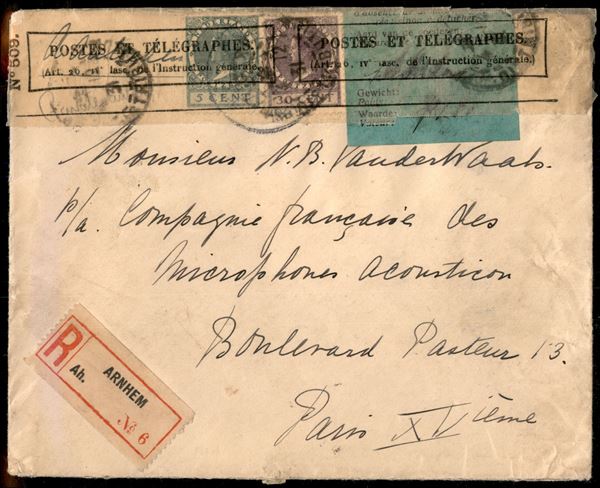 No 509.
POSTES ET TÉLÉGRAPHES. POSTES ET TÉLÉGRAPHES.
(Art. 20, IVe fasc. de l'Instruction générale.) (Art. 20, IVe fasc. de l'Instruction générale.)
NEDERLAND
5 CENT 30 CENT
Gewicht:
Poids
Waarde:
Valeur:
Monsieur N. B. VanderWaals.
p/a. Compagnie française des
Microphones Acousticon
Boulevard Pasteur 13.
Paris XVième
R
Ah. ARNHEM
No 6